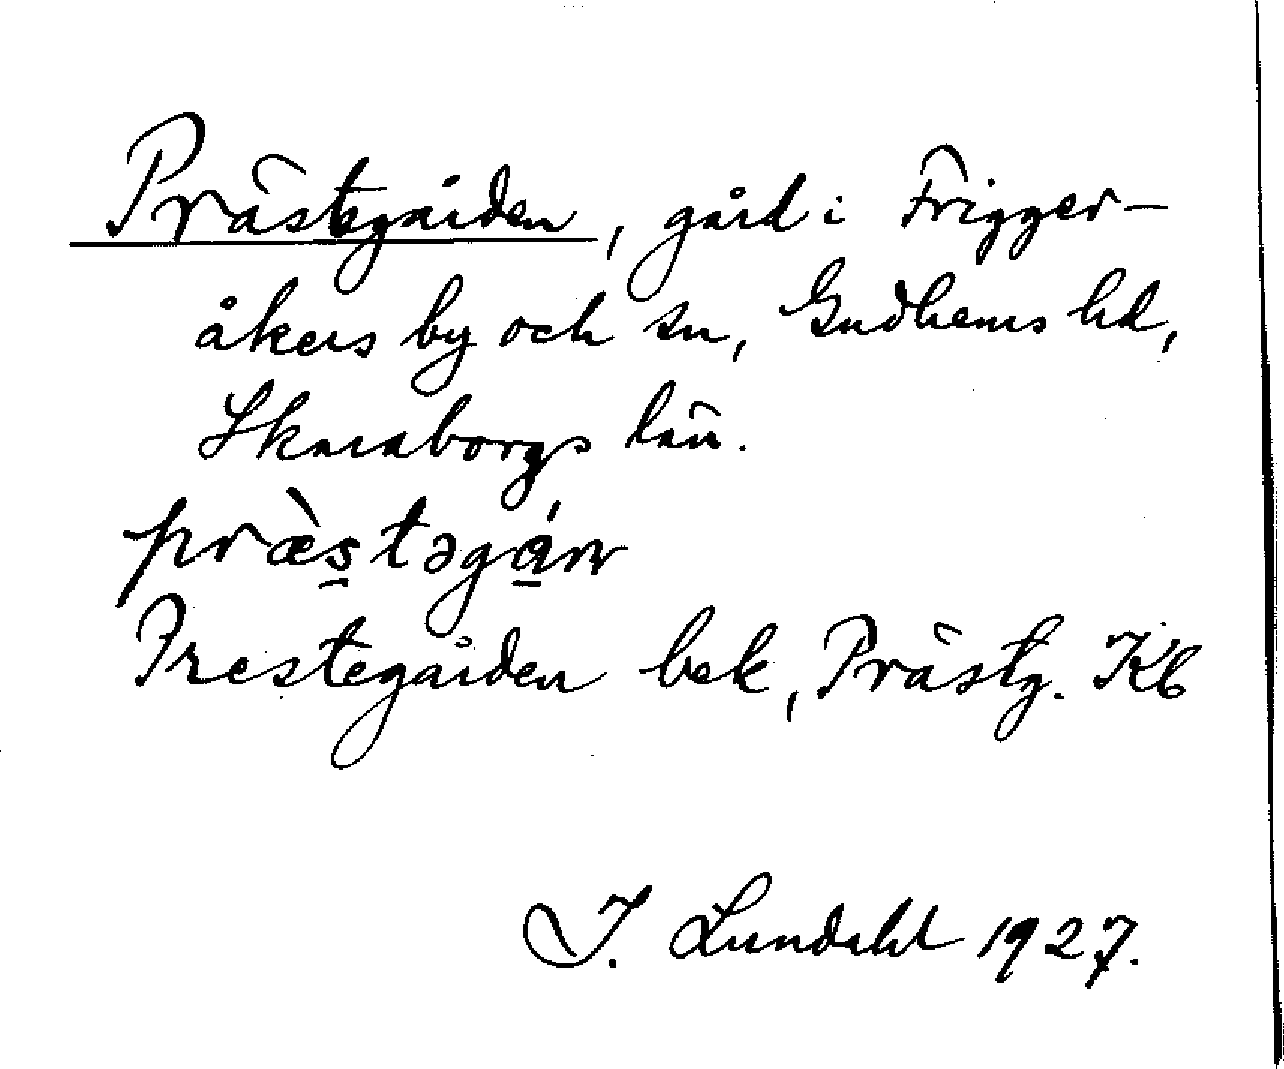 Prästegården, gård i Frigger-
åkers by och sn, Gudhems hd,
Skaraborgs län.
præ̀s̲təgá̲rn
Prestegården bek, Prästg. Kb
I. Lundahl 1927.